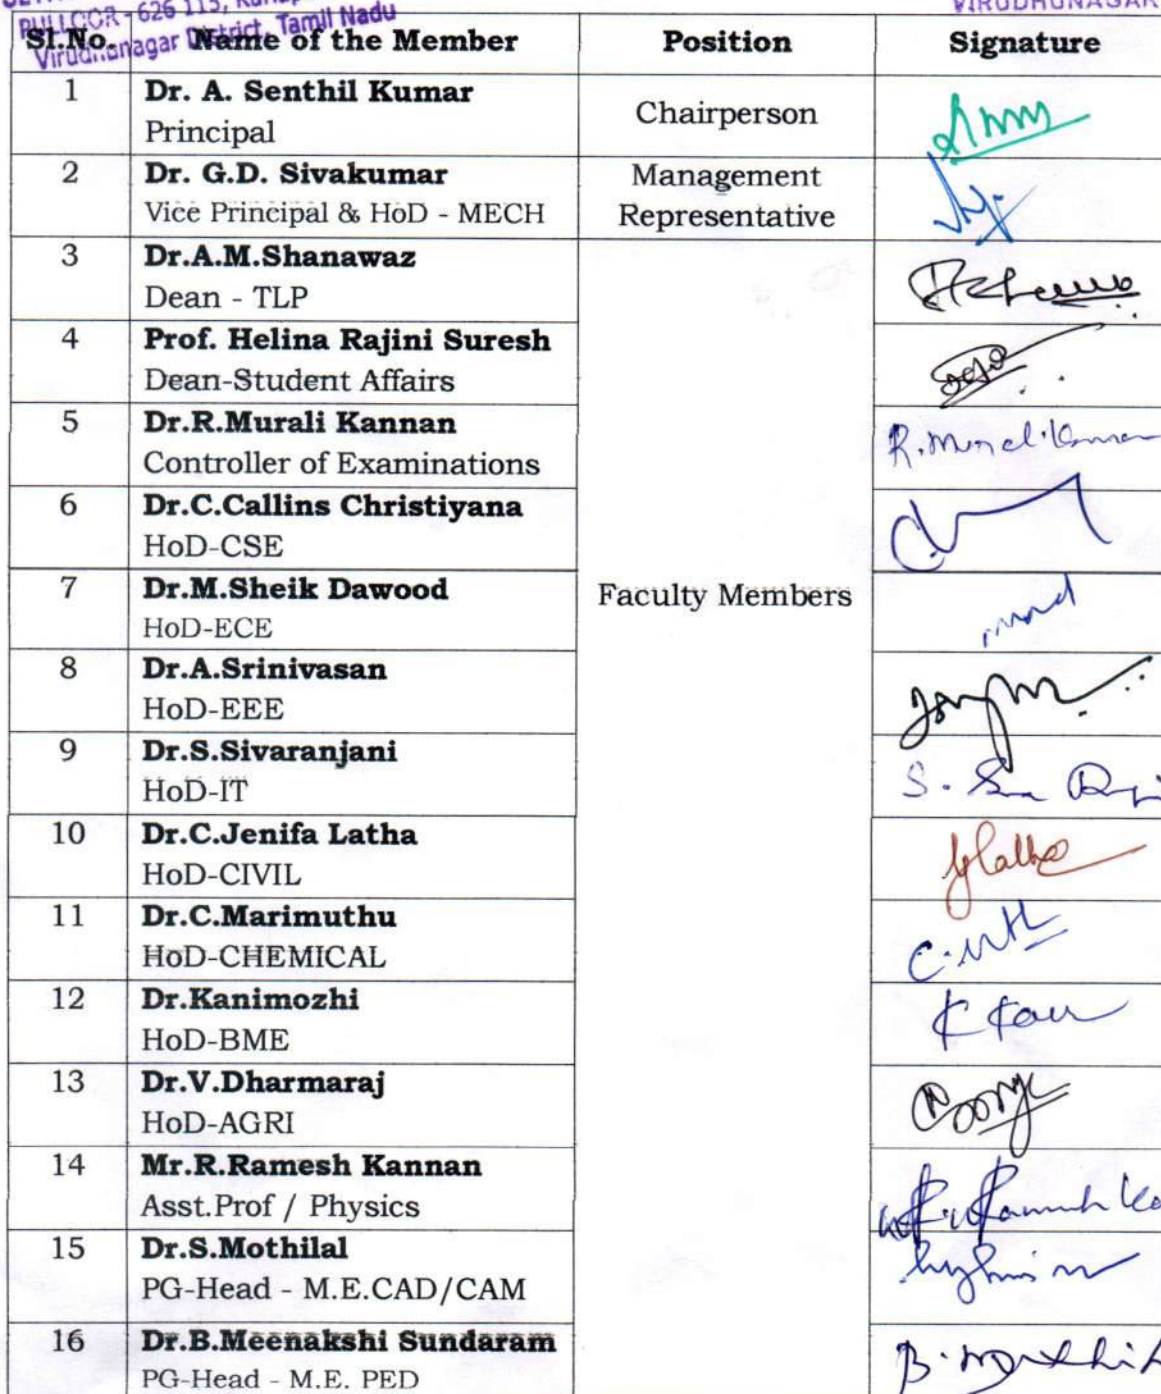 PULLOOR - 626 115,
Virudhunagar District, Tamil Nadu
VIRUDHUNAGAR
Sl.No. Name of the Member Position Signature
1 Dr. A. Senthil Kumar
Principal
Chairperson
2 Dr. G.D. Sivakumar
Vice Principal & HoD - MECH
Management
Representative
3 Dr.A.M.Shanawaz
Dean - TLP
4 Prof. Helina Rajini Suresh
Dean-Student Affairs
5 Dr.R.Murali Kannan
Controller of Examinations
6 Dr.C.Callins Christiyana
HoD-CSE
7 Dr.M.Sheik Dawood
HoD-ECE
Faculty Members
8 Dr.A.Srinivasan
HoD-EEE
9 Dr.S.Sivaranjani
HoD-IT
10 Dr.C.Jenifa Latha
HoD-CIVIL
11 Dr.C.Marimuthu
HoD-CHEMICAL
12 Dr.Kanimozhi
HoD-BME
13 Dr.V.Dharmaraj
HoD-AGRI
14 Mr.R.Ramesh Kannan
Asst.Prof / Physics
15 Dr.S.Mothilal
PG-Head - M.E.CAD/CAM
16 Dr.B.Meenakshi Sundaram
PG-Head - M.E. PED